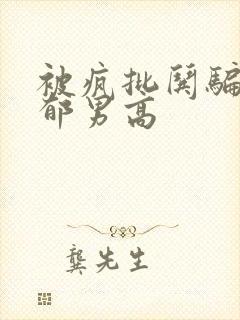 被疯批关骗
郁男高
龚先生